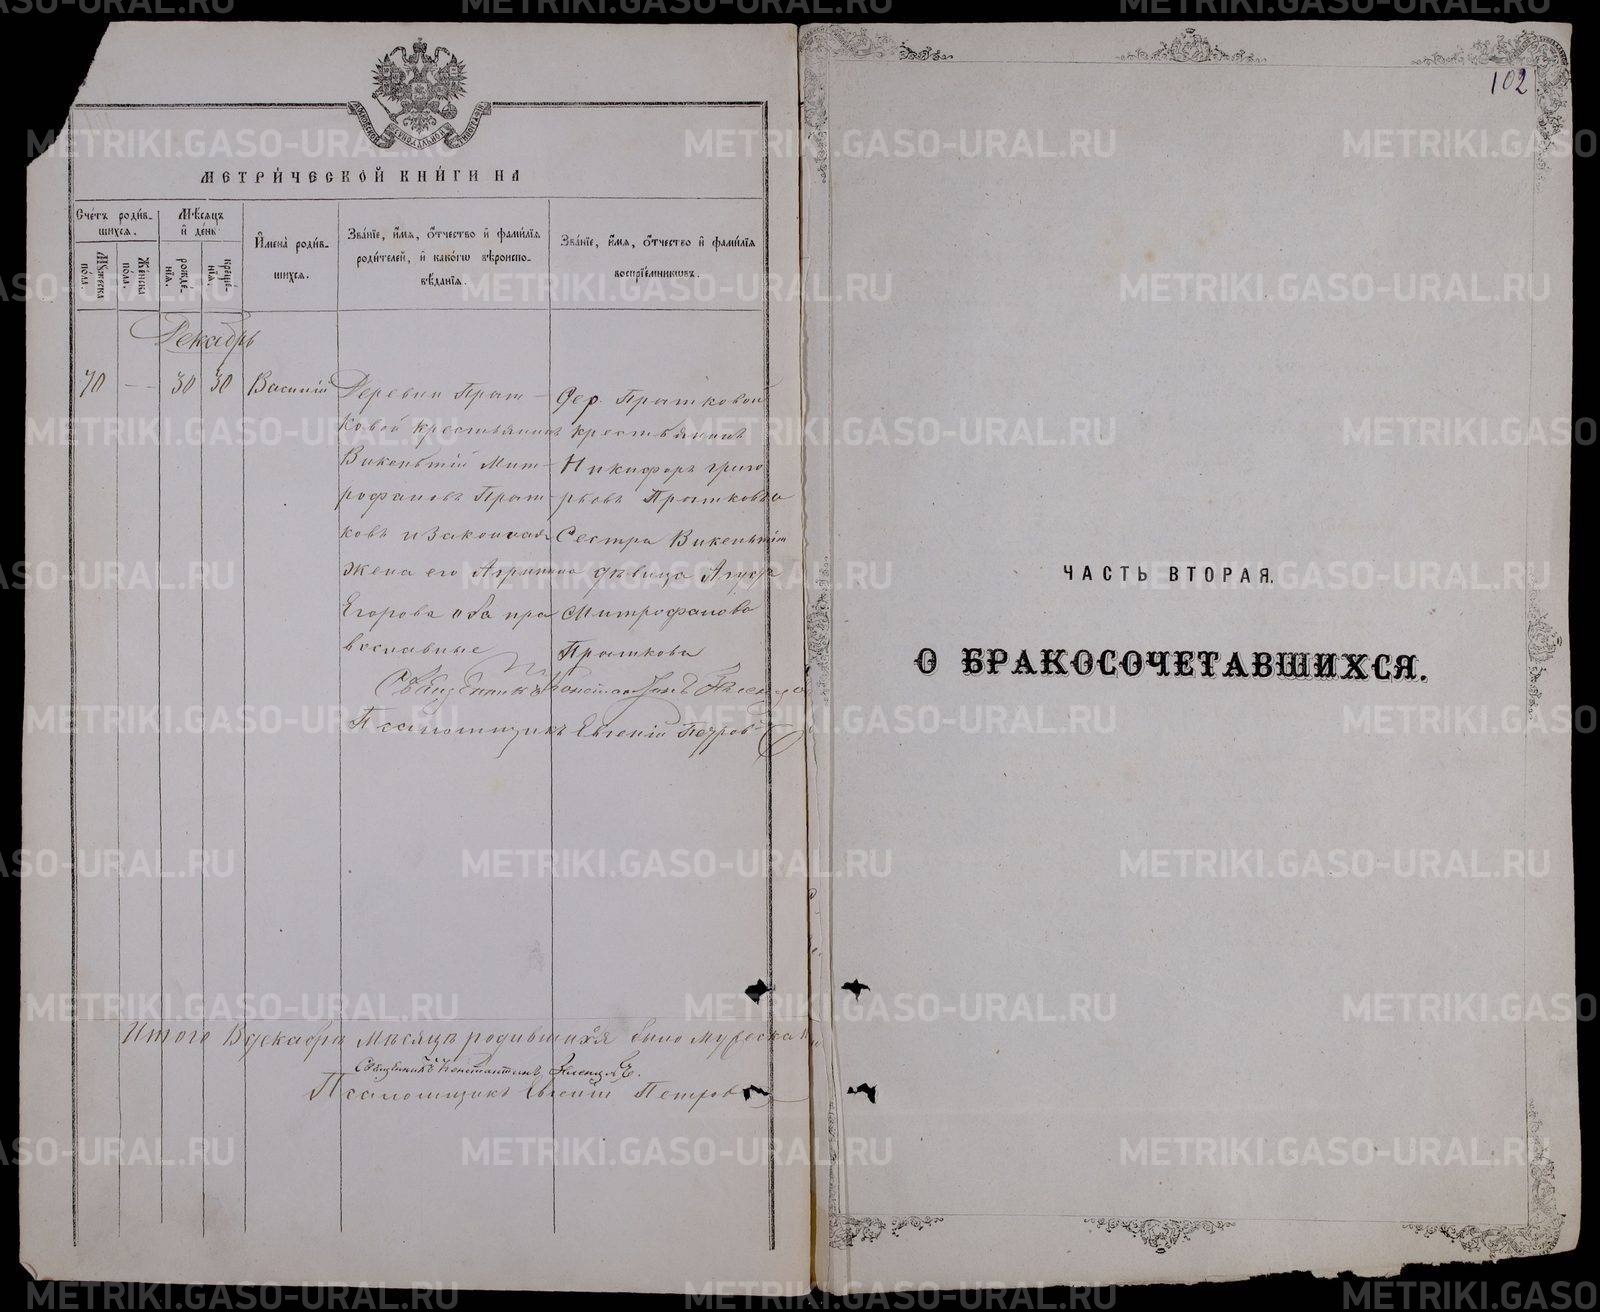 МЕТРИ́ЧЕСКОЙ КНИ́ГИ НА
Сче́тъ роди́в-
шихся.
Мꙋ́жеска
по́ла.
Же́нска
по́ла.
Мѣ́сяцъ
и҆ де́нь
рожде́-
нія.
креще́-
нія.
И҆мена̀ роди́в-
шихся.
Зва́ніе, и҆́мя, ѻ҆́тчество и҆ фами́лія
роди́телей, и҆ како́гѡ вѣроиспо-
вѣ́данія.
Зва́ніе, и҆́мя, ѻ҆́тчество и҆ фами́лія
воспріе́мникѡвъ.
Декабрь
70 — 30 30 Василій
Деревни Прат-
ковой крестьянинъ
Викентій Мит-
рофановъ Прат-
ковъ и законная
жена его Агрипина
Егорова оба пра
вославные
Дер. Пратковой
крестьянинъ
Никифоръ Григо
рьевъ Пратковъ и
Сестра Викентія
дѣвица
Митрофанова
Праткова
Священникъ Константинъ
Псаломщикъ Евгеній Петровъ
Итого в декабрѣ мѣсяцѣ родившихся было мужеска
Священникъ Константинъ
Псаломщикъ Евгеній Петровъ
102
ЧАСТЬ ВТОРАЯ.
О БРАКОСОЧЕТАВШИХСЯ.
METRIKI.GASO-URAL.RU